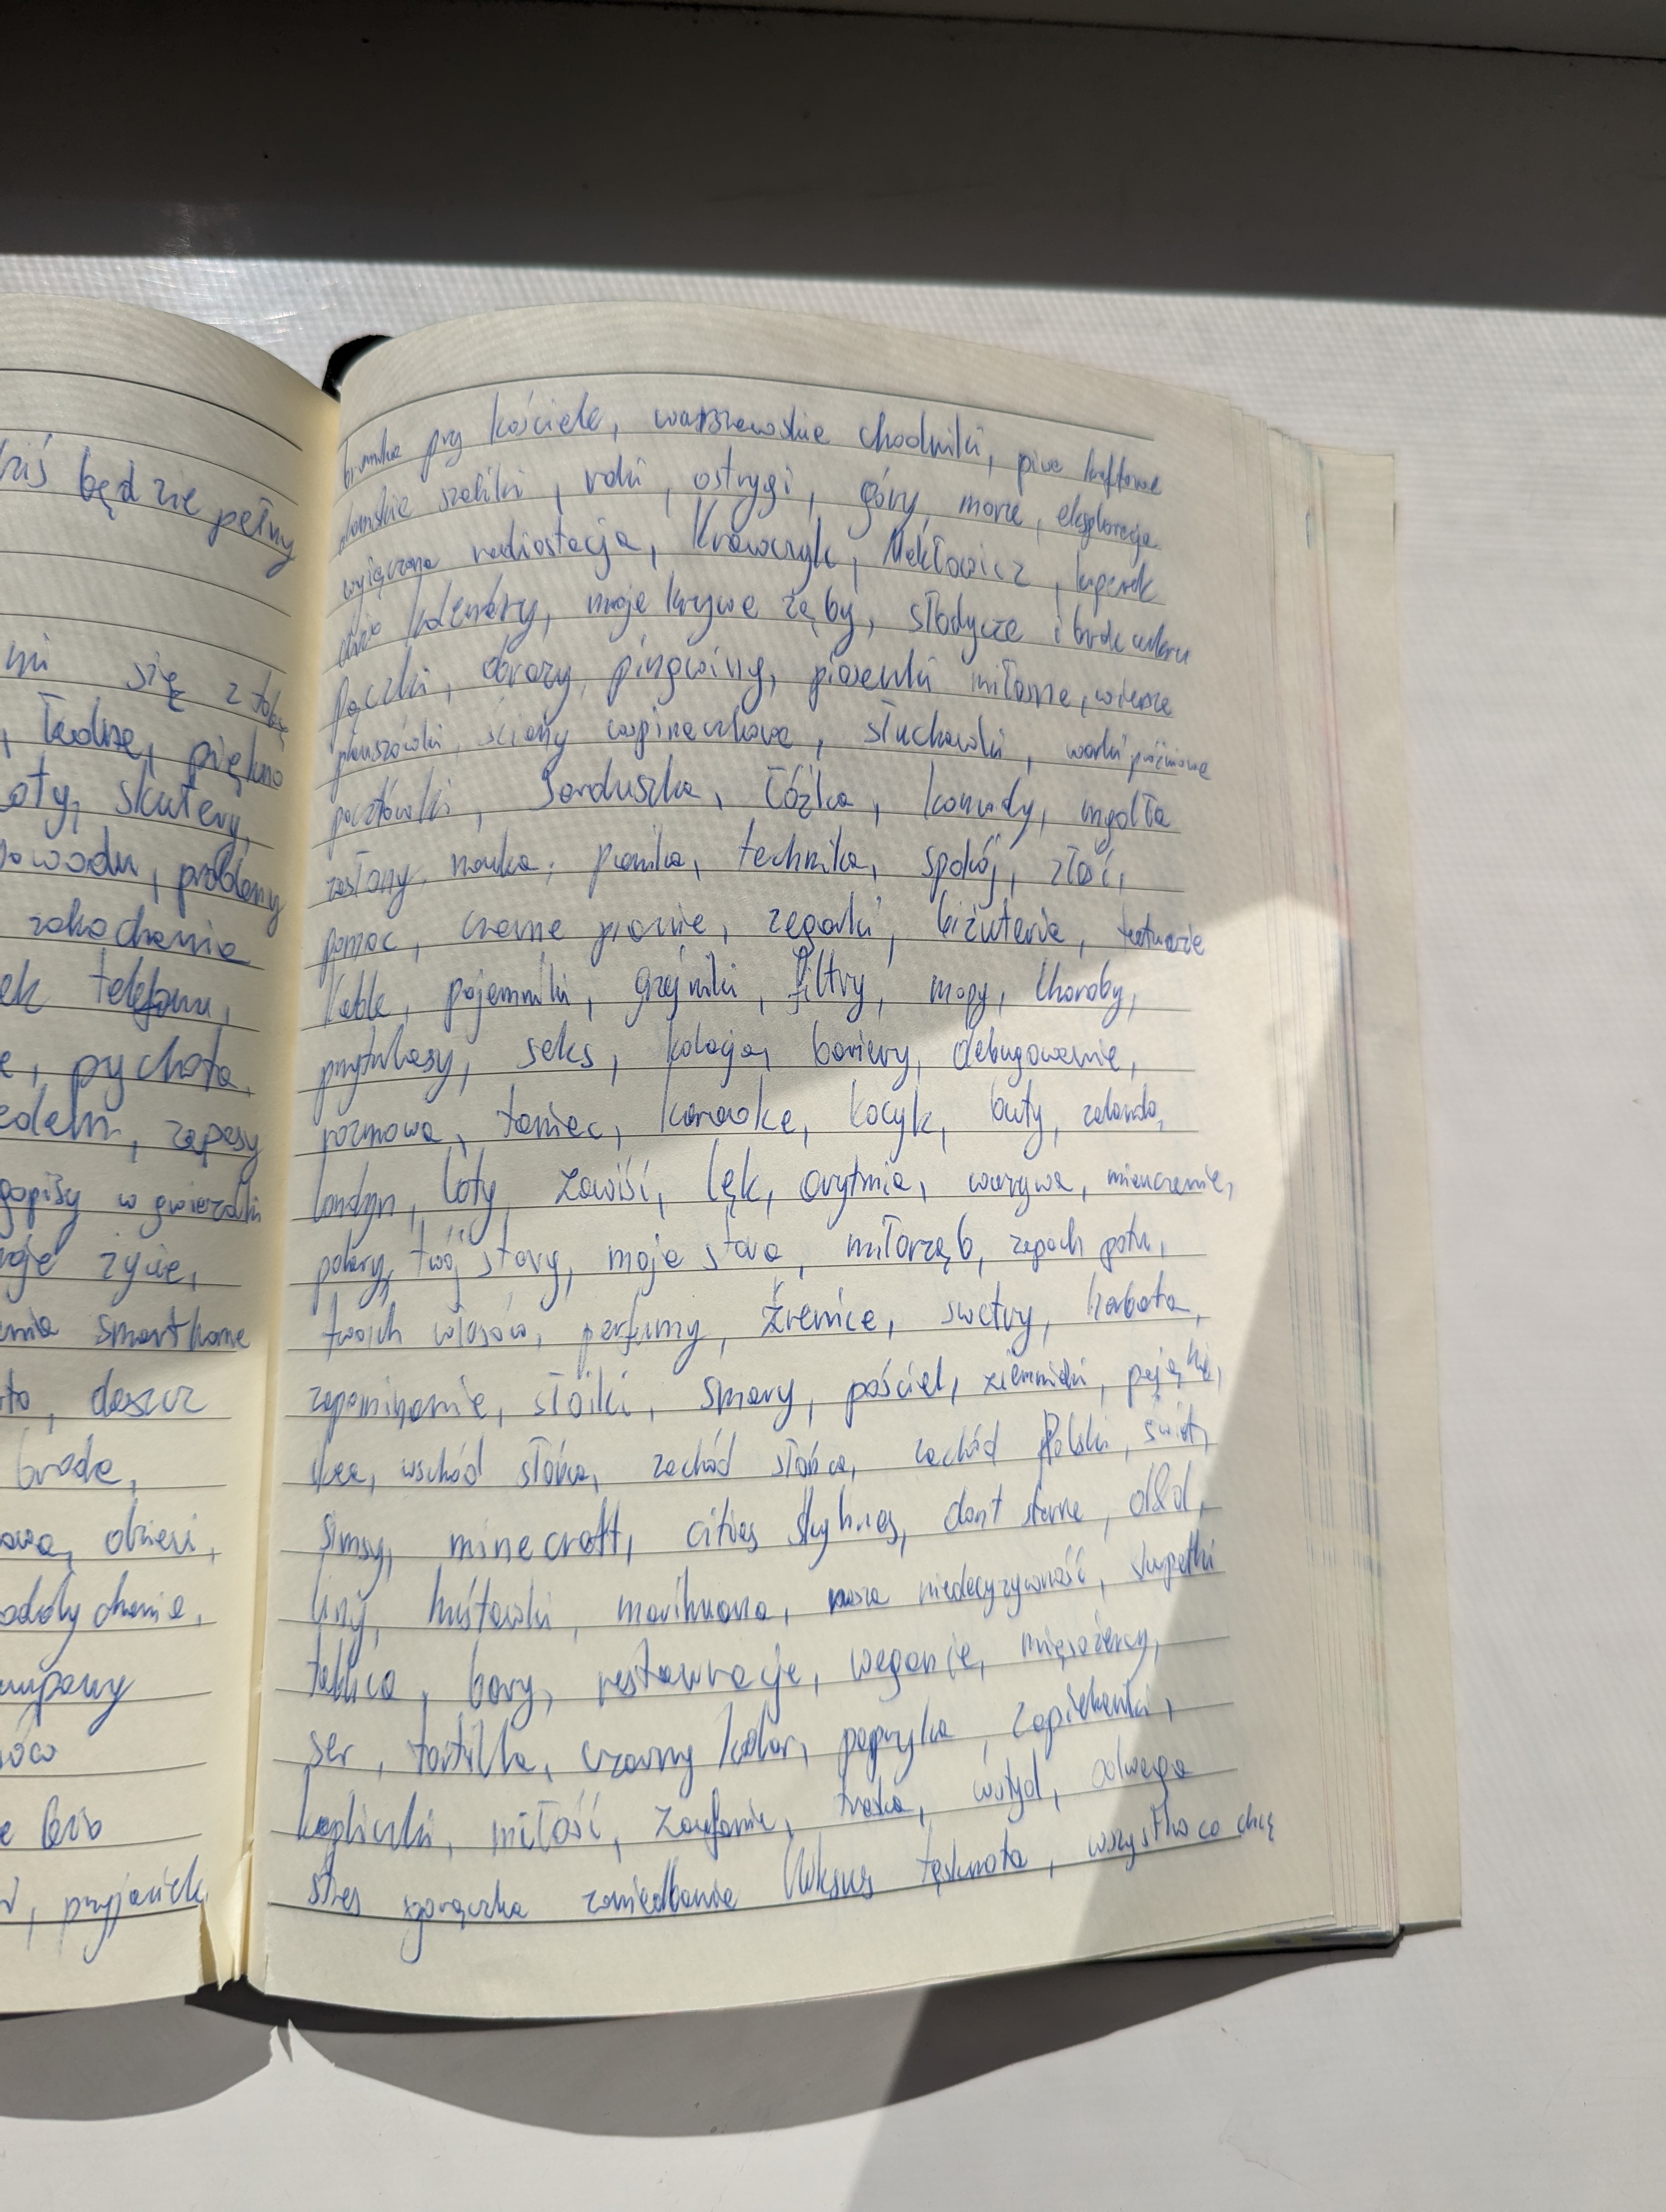 kiś będzie pełny
mi się z tobą
, ładne, piękno
oty, skutery,
owodu, problemy
zakochania
ek telefonu,
e, pychota,
edelu, zapasy
gapisy w gwiazdki
oje życie,
enia smarthome
to, deszcz
broda,
owa, dzieci,
oddychanie,
ówco
przyjaciele,
bramka przy kościele, warszawskie chodniki, piwa kraftowe
damskie szaliki, rolki, ostrygi, góry, morze, eksploracja
wyłączona radiostacja, Krawczyk, Makłowicz,
moje krzywe zęby, słodycze i brak cukru
pączki, obrazy, pingwiny, piosenki miłosne, wiersze
planszówki, ściany wspinaczkowe, słuchawki, worki próżniowe
pocztówki, Serduszka, łóżka, komody, mydła
zasłony, nauka, panika, technika, spokój, złość,
pomoc, czarne pranie, zegarki, biżuteria, tatuaże
kable, pojemniki, grzejniki, filtry, mopy, choroby,
przytulasy, seks, kolacja, bariery, debugowanie,
rozmowa, taniec, karaoke, kocyk, buty, zalando,
londyn, loty, zawiść, lęk, arytmia, warzywa, miauczenie,
pokery, twój stary, moja stara, miłorząb, zapach potu,
twoich włosów, perfumy, źrenice, swetry, herbata,
zapominanie, słoiki, smary, pościel, ziemniaki, pająki,
ikea, wschód słońca, zachód słońca, zachód Polski, świt,
simsy, minecraft, cities skylines, dont starve, d&d,
liny, huśtawki, marihuana, nasza niedecyzyjność, skarpetki
tablica, bary, restauracje, weganie, mięsożercy,
ser, tortilla, czarny kolor, papryka, zapiekanki,
kapliczki, miłość, zaufanie, troska, wstyd, odwaga
stres gorączka zaniedbanie luksus tęsknota, wszystko co chcę